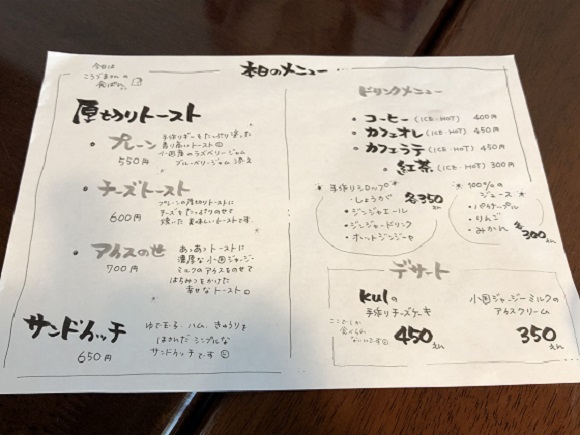 今日は
こうづまさんの
食ぱん。
本日のメニュー
厚もりトースト
・プレーン
550円
手作りギーをたっぷり塗った
香り高いトースト
小国産のラズベリージャム
ブルーベリージャム添え
・チーズトースト
600円
プレーンの厚切りトーストに
チーズをたっぷりのせて
焼いた美味しいトーストです。
・アイスのせ
700円
あつあつトーストに
濃厚な小国ジャージー
ミルクのアイスをのせて
はちみつをかけた
幸せなトースト
サンドイッチ
650円
ゆで玉子・ハム、きゅうりを
はさんだシンプルな
サンドイッチです
ドリンクメニュー
・コーヒー(ICE・HOT) 400円
・カフェオレ(ICE・HOT) 450円
・カフェラテ(ICE・HOT) 450円
・紅茶(ICE・HOT) 300円
*手作りシロップ*
・しょうが
・ジンジャエール
・ジンジャードリンク
・ホットジンジャー
各350えん
*100%の
ジュース*
・パイナップル
・りんご
・みかん
各300えん
デザート
kulの
手作りチーズケーキ
ここでしか
食べられ
ないです
450えん
小国ジャージーミルクの
アイスクリーム
350えん